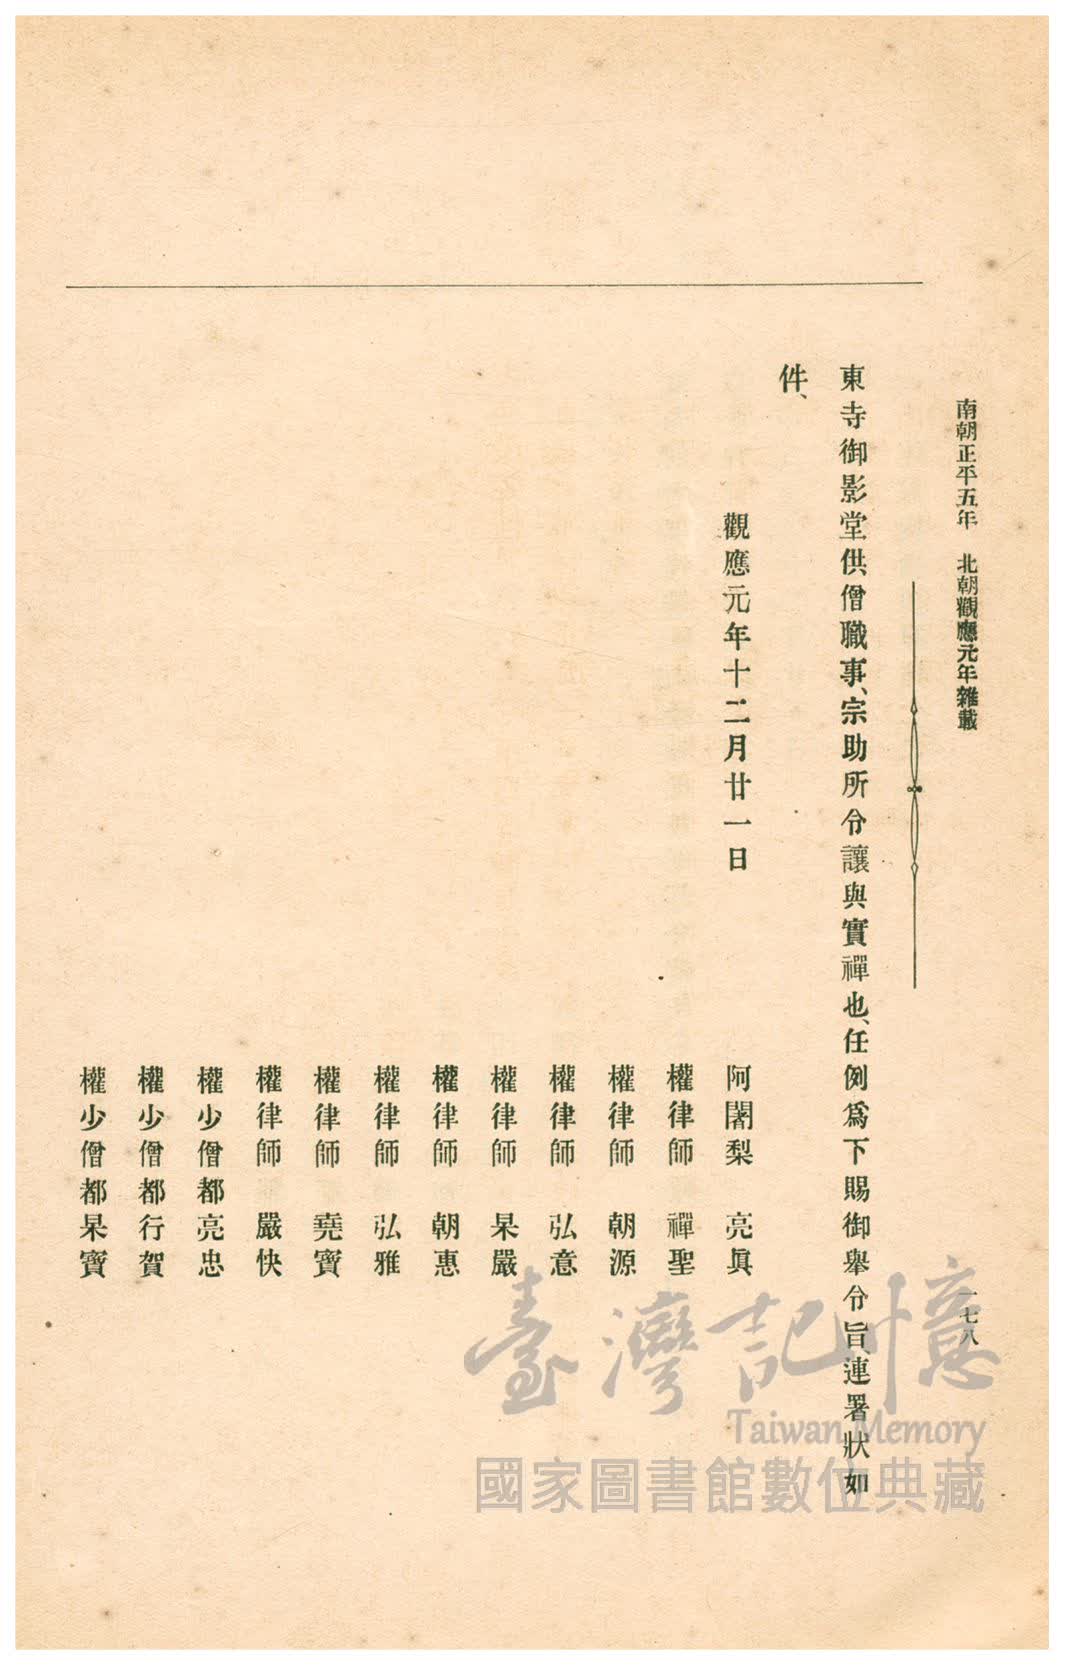 南朝正平五年　北朝觀應元年雜載
一七八
東寺御影堂供僧職事、宗助所令讓與實禪也、任例爲下賜御擧令旨、連署狀如
件、
觀應元年十二月廿一日
阿闍梨　亮眞
權律師　禪聖
權律師　朝源
權律師　弘意
權律師　杲嚴
權律師　朝惠
權律師　弘雅
權律師　堯寶
權律師　嚴快
權少僧都亮忠
權少僧都行賀
權少僧都杲寶
臺灣記憶
Taiwan Memory
國家圖書館數位典藏